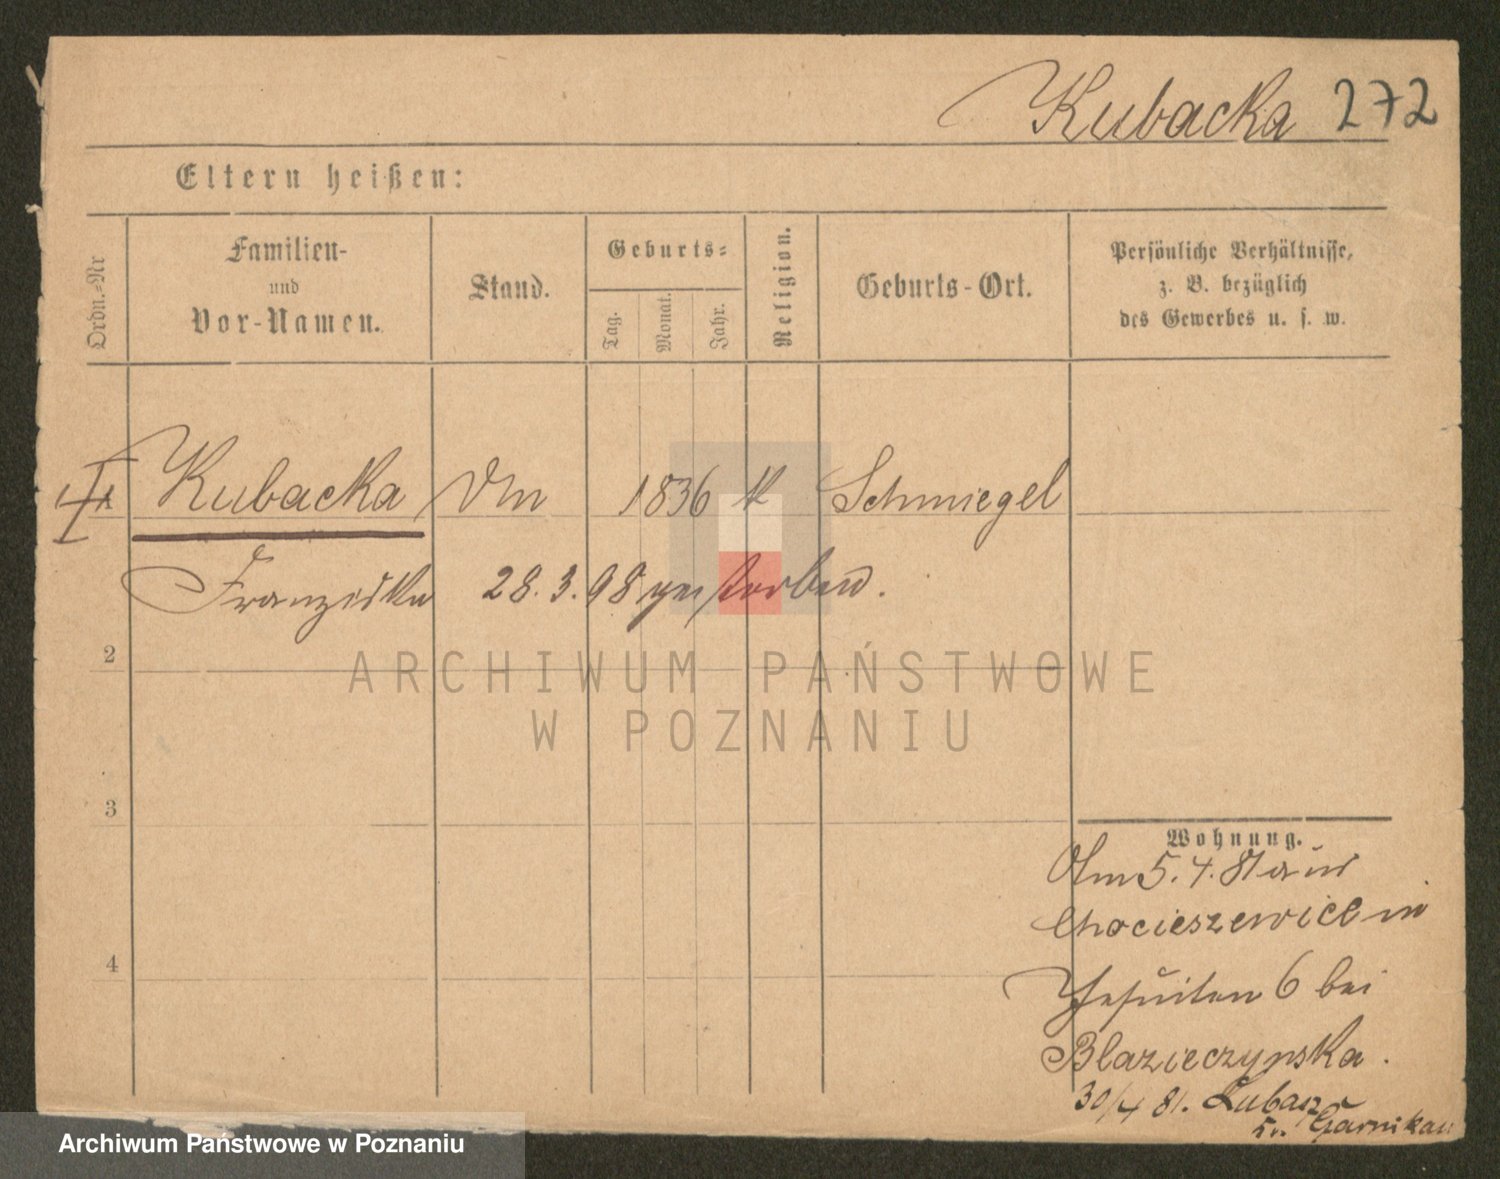 Kubacka 272
Eltern heißen:
Ordn.-Nr
Familien-
und
Vor-Namen.
Stand.
Geburts-
Tag.
Monat.
Jahr.
Religion.
Geburts-Ort.
Persönliche Verhältnisse,
z. B. bezüglich
des Gewerbes u. s. w.
Kubacka 1836 k Schmiegel
Franziska 28. 3. 98 gestorben.
2
ARCHIWUM PAŃSTWOWE
W POZNANIU
3
Wohnung.
Am 5. 4. 81 aus
Chocieszewice in
4
Jesuiten 6 bei
Blazieczynska.
30/4 81. Lubasz
Czarnikau
Archiwum Państwowe w Poznaniu